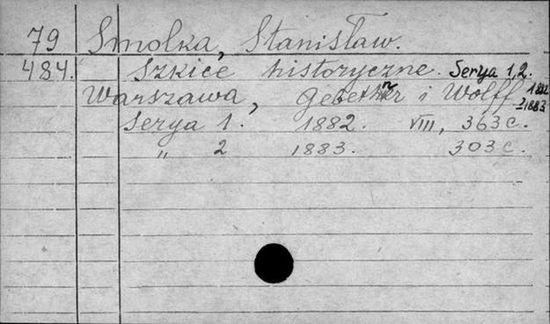 79 Smolka, Stanisław.
484. Szkice historyczne. Serya 1,2.
Warszawa, Gebethner i Wolff 1882-1883
Serya 1. 1882. VIII, 363 c.
„ 2 1883. 303 c.